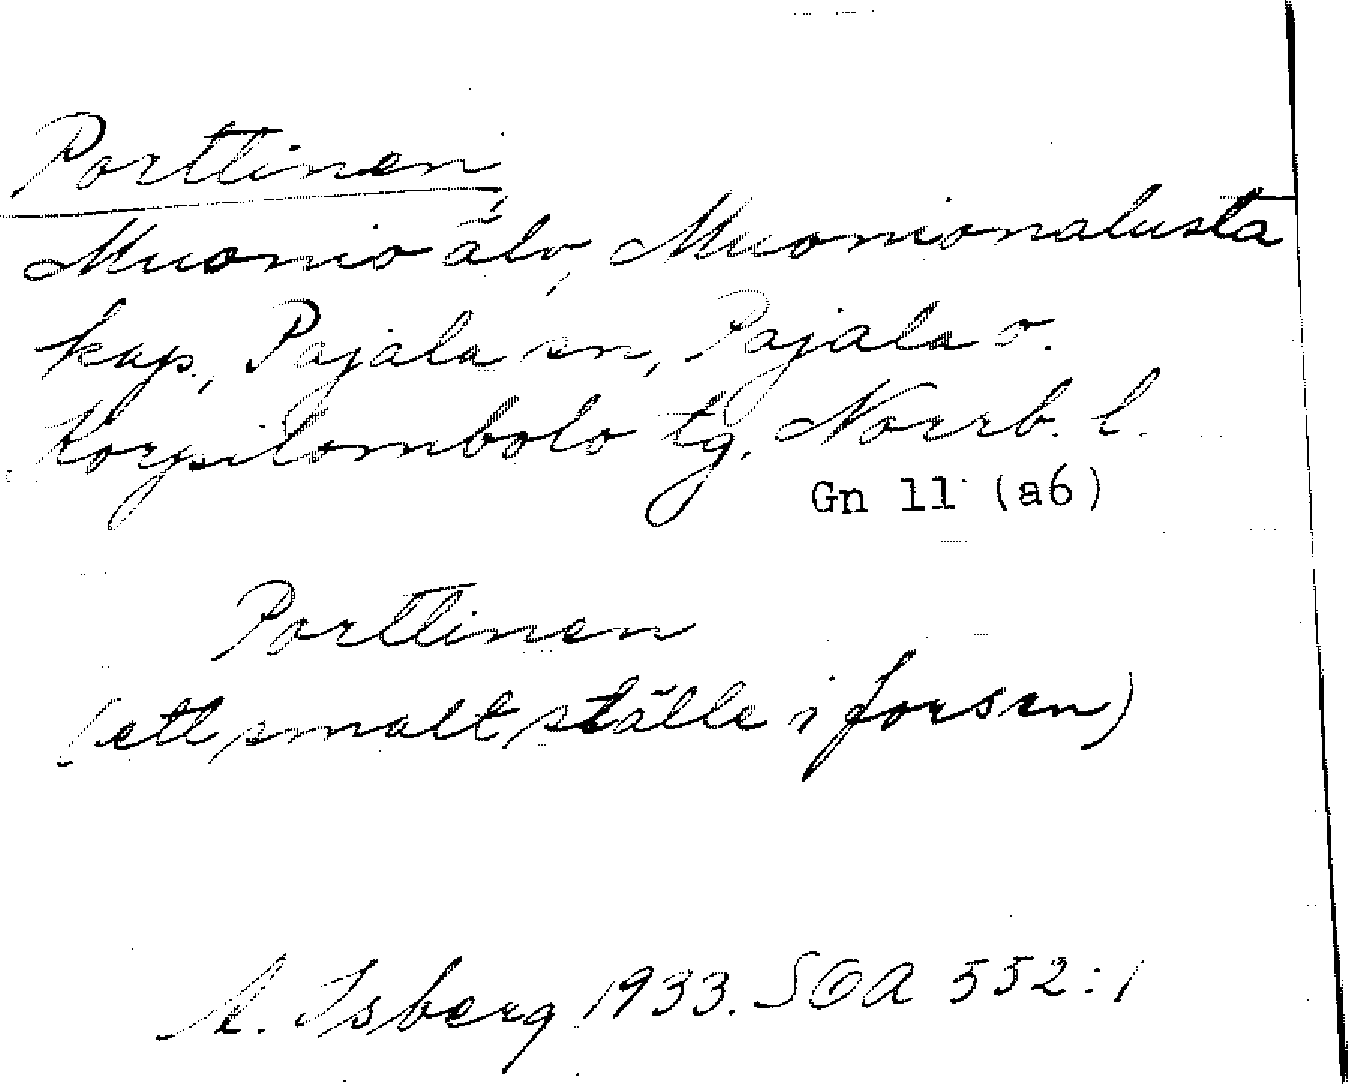 Porttinen,
Muonio älv, Muonionalusta
kap., Pajala sn, Pajala o.
Korpilombolo tg. Norrb. l.
Gn 11 (a6)
Porttinen
(ett smalt ställe i forsen)
A. Isberg 1933. SOA 552:1